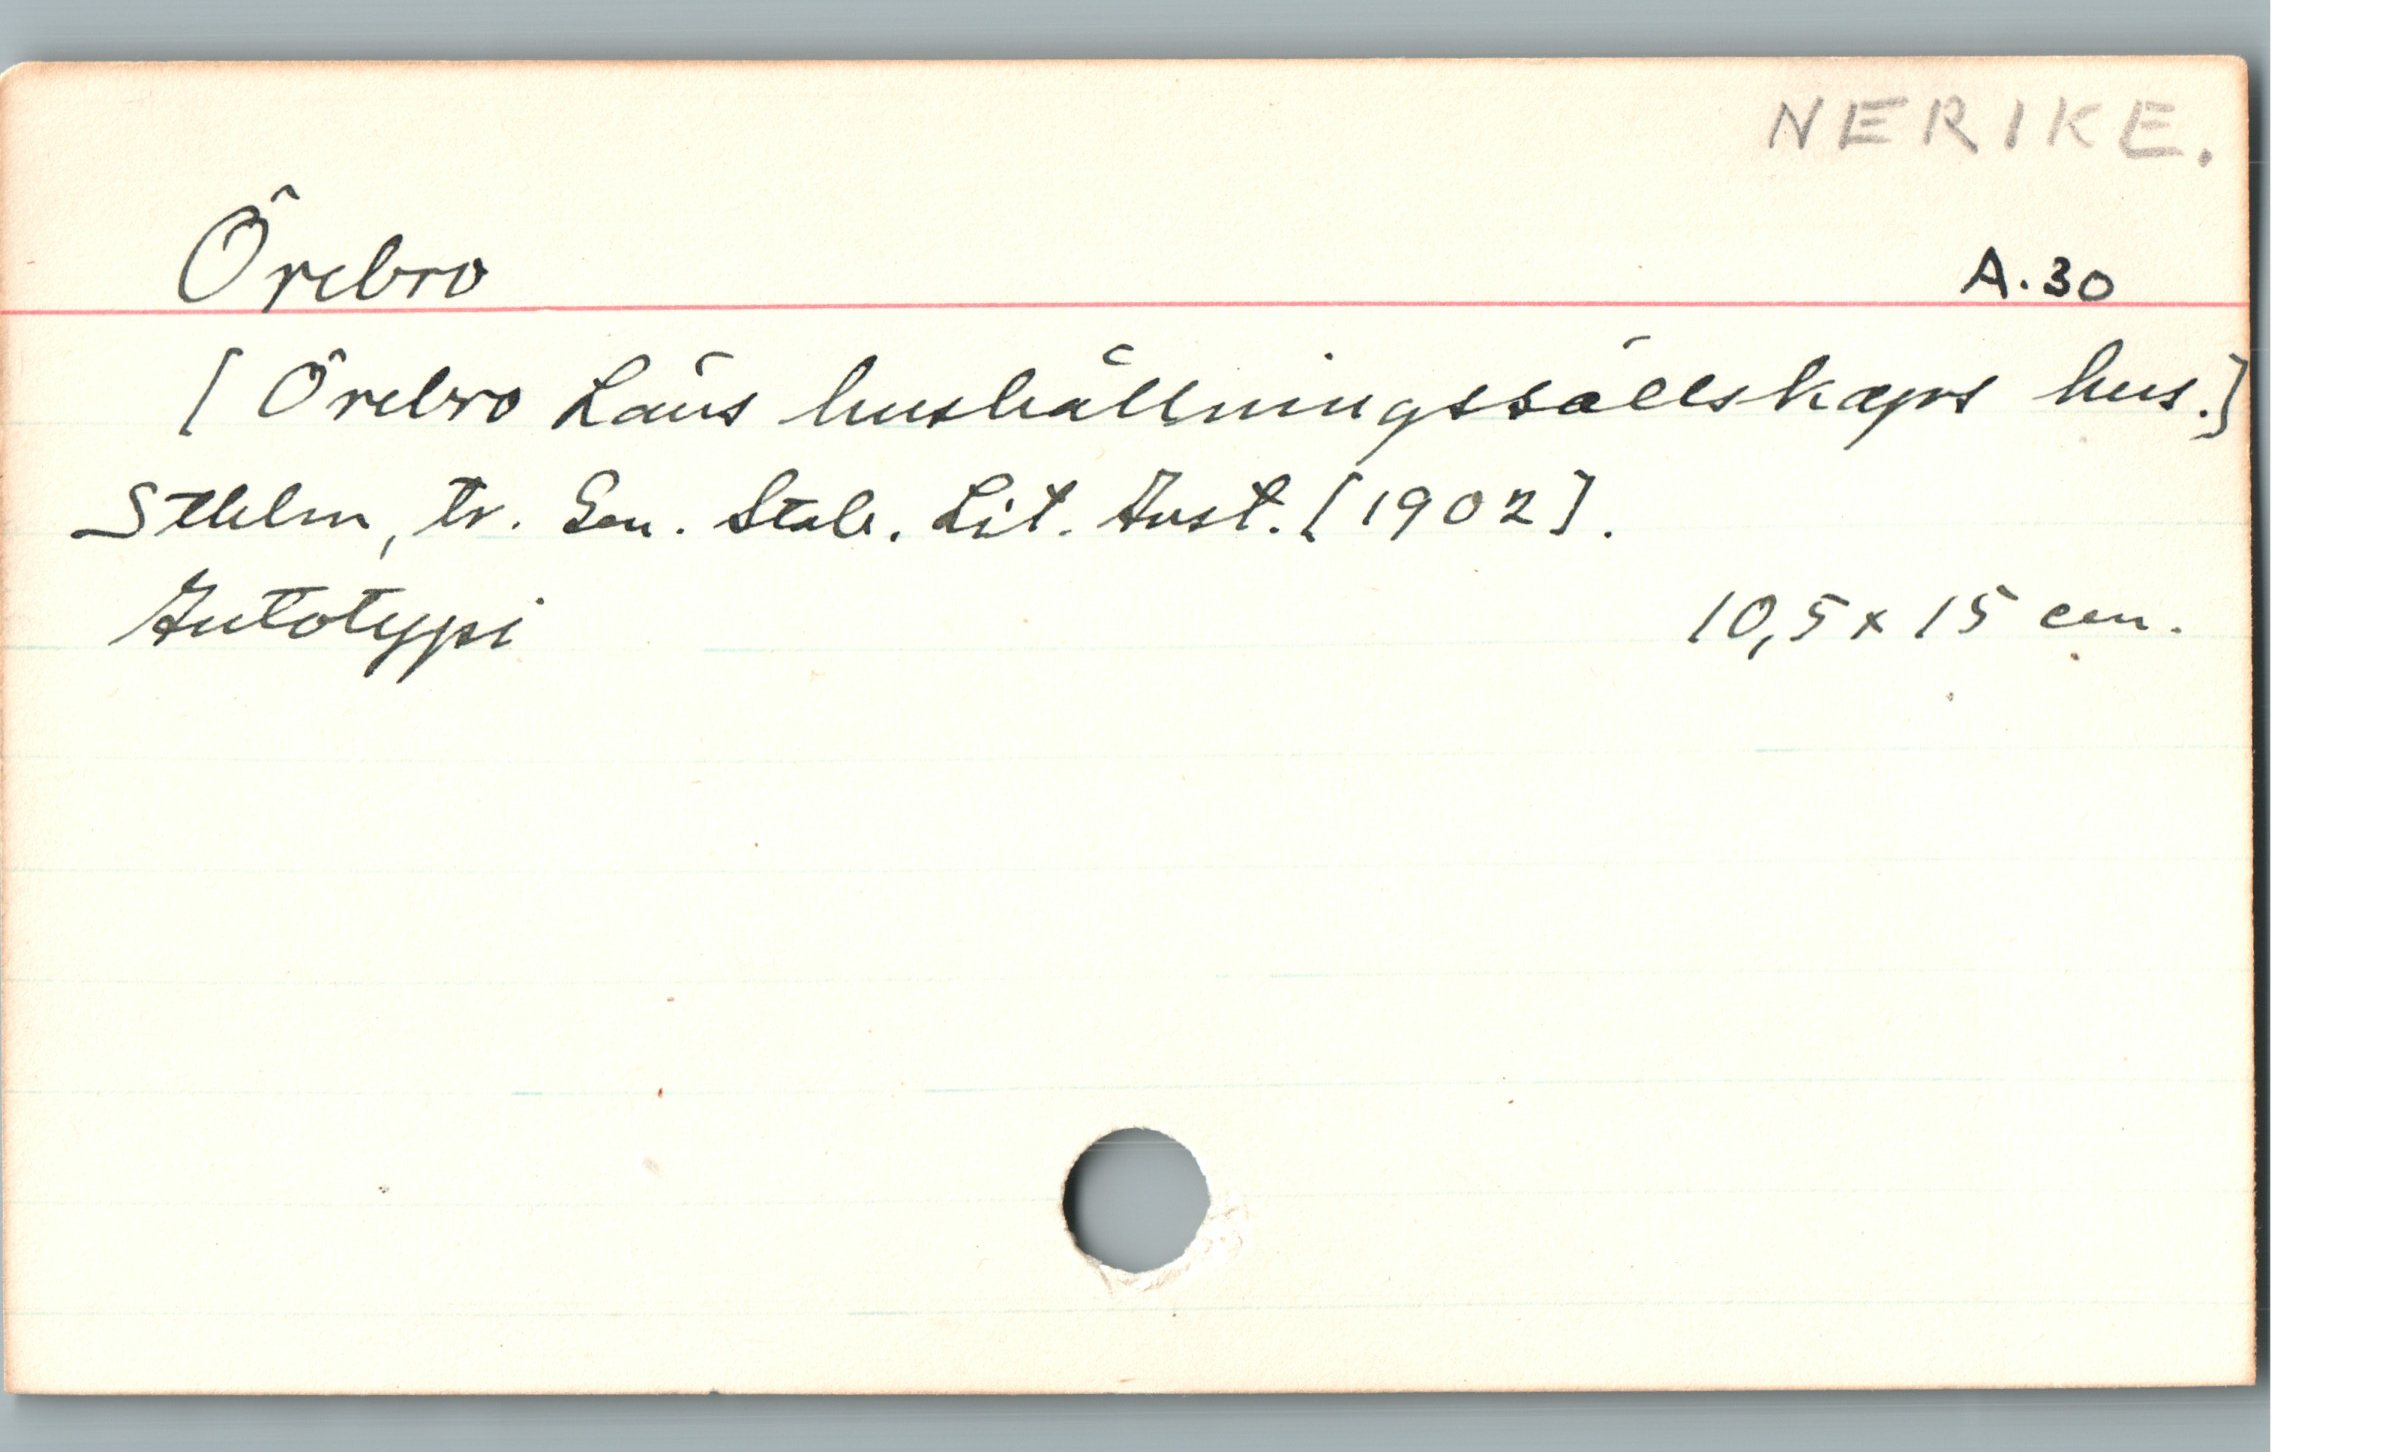 NERIKE.
Örebro A.30
[Örebro Läns hushållningssällskaps hus.]
Sthlm, tr. Gen. Stab. Lit. Anst. [1902].
Autotypi 10,5 x 15 cm.